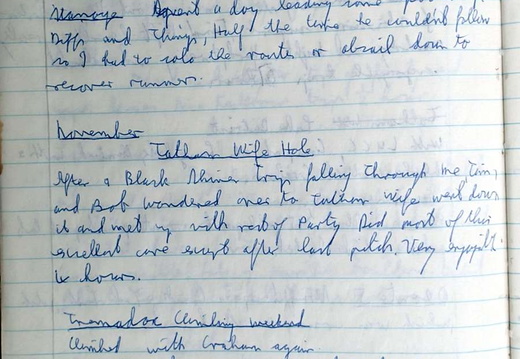 spent a day leading some
Diffs and Things, Half the time he couldn't follow
so I had to solo the routes or abseil down to
recover runners.
November
Tatham Wife Hole.
After a Black Shiver Trip falling through me Tim,
and Bob wandered over to Tatham wife went down
it and met up with rest of Party Did most of this
excellent cave except after last pitch. Very enjoyable
hours.
Tremadoc Climbing weekend
Climbed with Graham again